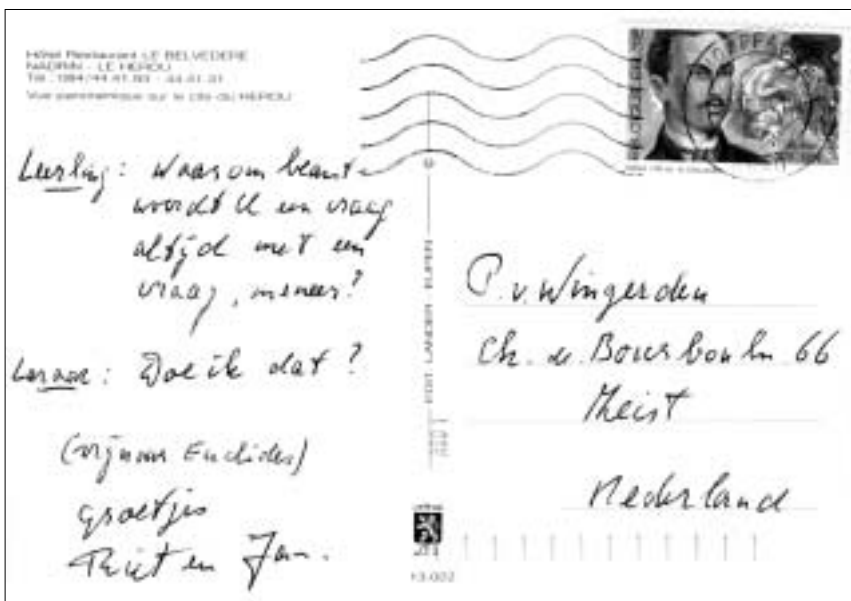 Hôtel Restaurant LE BELVEDERE
NADRIN - LE HEROU
Vue panoramique sur le site du HEROU
Leerling: Waarom beant-
woordt U een vraag
altijd met een
vraag, meneer?
Leraar: Doe ik dat?
(vrij naar Euclides)
groetjes
Riet en Jan.
EDIT. LANDER EUPEN
P. v. Wingerden
Ch. de Bourbonln 66
Zeist
Nederland